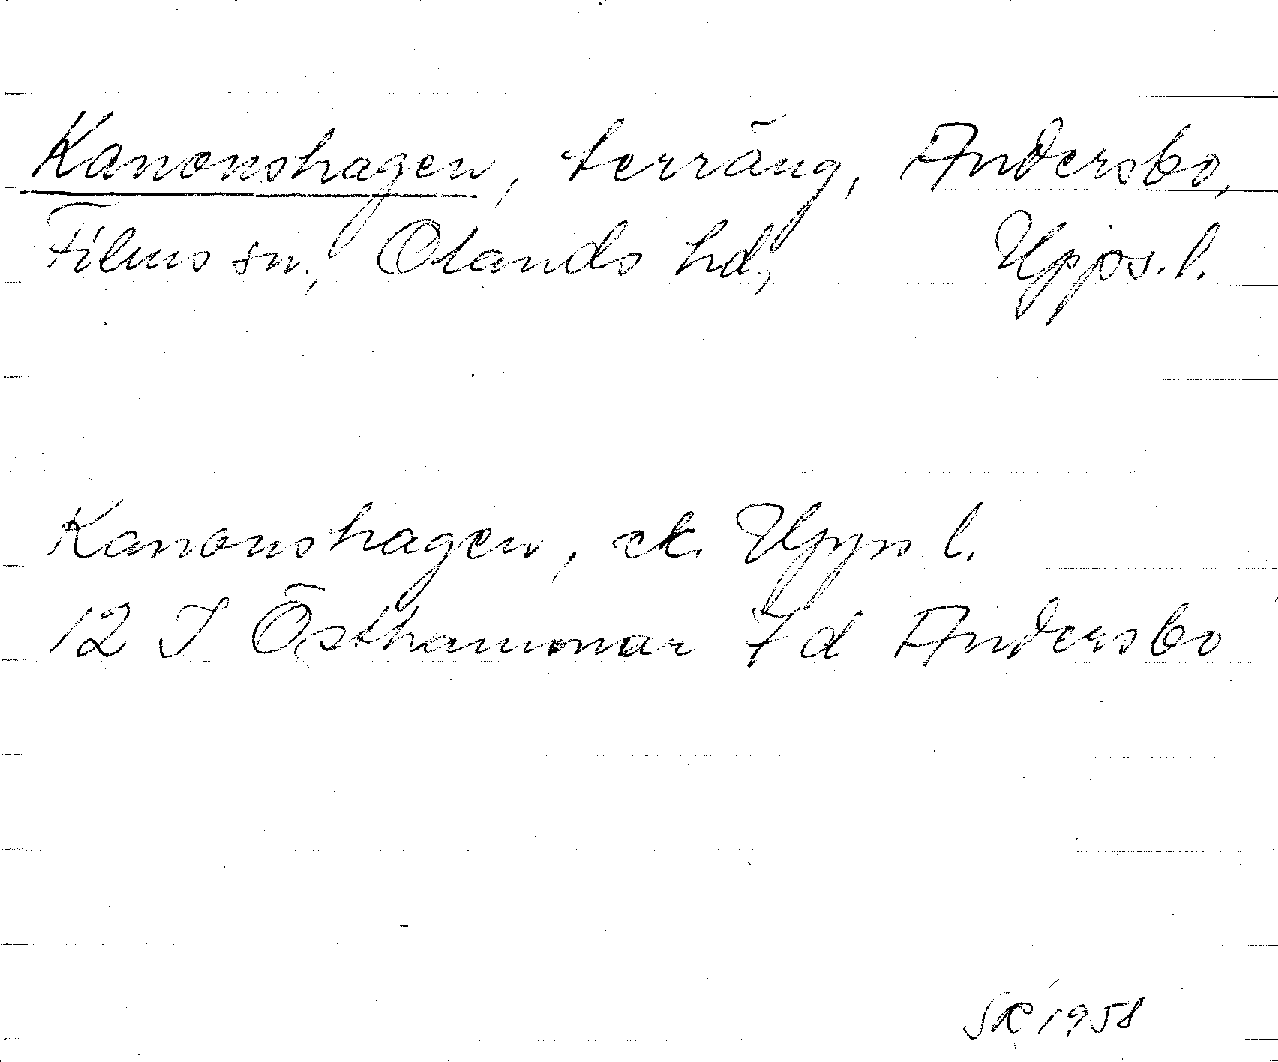 Kanonshagen, terräng, Andersbo,
Films sn, Olands hd, Upps. l.
Kanonshagen, ek. Upps l.
12 I Östhammar 7d Andersbo
SK 1958